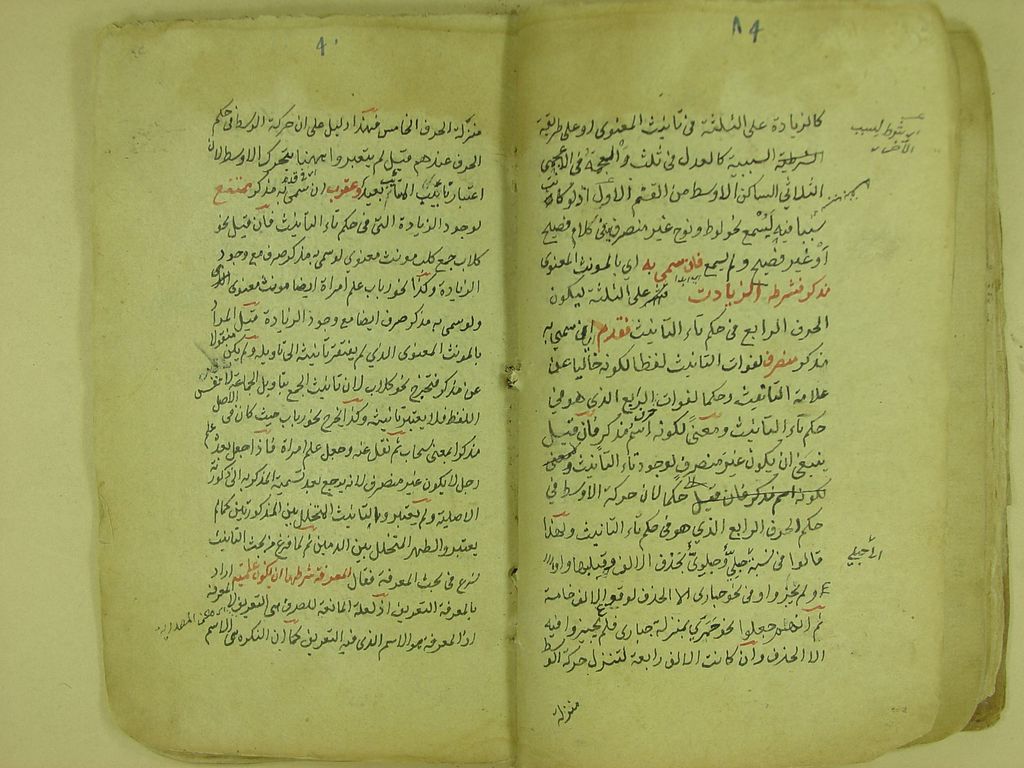 ٨٩
كالزيادة على الثلثة في تانيث المعنوى او على طريقة
السببية كالعدل في ثلث والعجمة في الاعجمى
الثلاثي الساكن الاوسط من القسم الاول اذ لو كان
سببا فيه ليسمع نحو لوط ونوح غير منصرف في كلام فصيح
او غير فصيح ولم يسمع فان سمى به اي بالمونث المعنوى
مذكر فشرطه الزيادة على الثلثة ليكون
الحرف الرابع في حكم تاء التانيث فقدم اذا سمى به
مذكر منصرف لفوات التانيث لفظا لكونه خاليا عن
علامة التانيث وحكما لفوات الرابع الذي هو في
حكم تاء التانيث ومعنى لكونه اسم مذكر فان قيل
ينبغى ان يكون غير منصرف لوجود تاء التانيث
لكونه اسم مذكر فان قيل حكما لان حركة الاوسط في
حكم الحرف الرابع الذي هو في حكم تاء التانيث ولهذا
قالوا في نسبة حبلى حبلى بحذف الالف وقلبها واوا
ولم يجيزوا في نحو حبارى الا الحذف لوقوع الالف خامسة
ثم انهم جعلوا نحو جمزى بمنزلة حبارى فلم يجيزوا فيه
الا الحذف وان كانت الالف رابعة لتنزل حركة الوسط
منزلة
٩٠
منزلة الحرف الخامس فهذا دليل على ان حركة الوسط في حكم
الحرف عندهم قيل لم يعتبروا ههنا تحرك الاوسط لان
اعتبار تانيث بعيد وعقرب ان سمى به مذكر ممتنع
لوجود الزيادة التى في حكم تاء التانيث فان قيل نحو
كلاب جمع كلب مونث معنوى لو سمى به مذكر صرف مع وجود
الزيادة وكذا نحو رباب علم امراة ايضا مونث معنوى
ولو سمى به مذكر صرف ايضا مع وجود الزيادة قيل المراد
بالمونث المعنوى الذي لم يفتقر تانيثه الى تاويل ولم يكن منقولا
عن مذكر فيخرج نحو كلاب لان تانيث الجمع بتاويل الجماعة
اللفظ فلا يعتبر تانيثه وكذا يخرج نحو رباب حيث كان في الاصل
مذكرا بمعنى سحاب ثم نقل عنه وجعل علم امراة فاذا جعل بعده علم
رجل لا يكون غير منصرف لانه يرجع بعد تسمية المذكر به الى ذكورته
الاصلية ولم يعتبروا التانيث المتخلل بين المذكورتين كما لم
يعتبروا الطهر المتخلل بين الدمين ثم لما فرغ من بحث التانيث
شرع في بحث المعرفة فقال المعرفة شرطها ان تكون علمية اراد
بالمعرفة التعريف اذ العلة المانعة للصرف هى التعريف لا المعرفة
اذ المعرفة هو الاسم الذى فيه التعريف كما ان النكرة هى الاسم